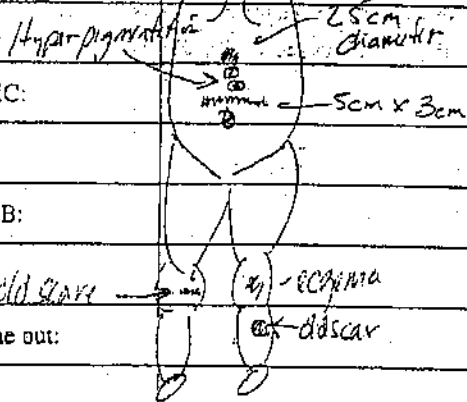 25cm
Hyperpigmentation
diameter
C:
5cm x 3cm
B:
old scars
eczema
old scar
e out: